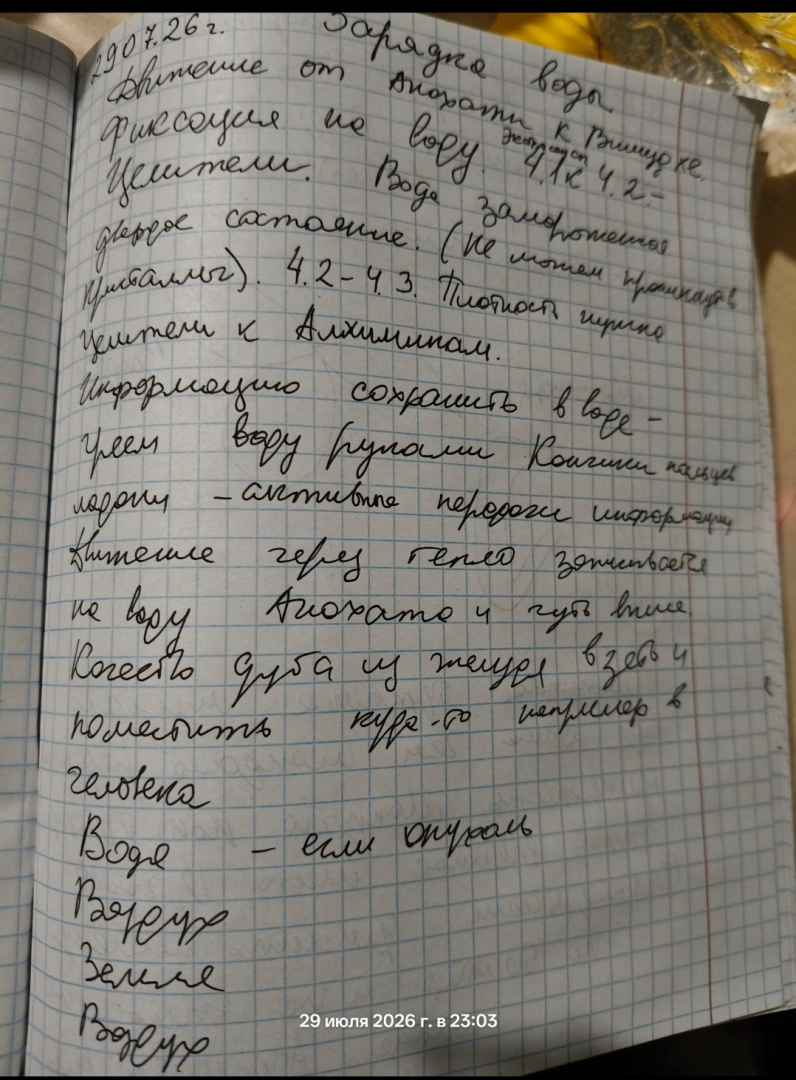 29.07.26 г. Зарядка воды.
Движение от Анохаты к Вишудхе.
Фиксация на воду. Экстрасенс 4.1 к 4.2 –
Целители. Вода замороженная
твердое состояние. (Не можем проникнуть в
кристаллы). 4.2 – 4.3. Плотность нужна
Целители к Алхимикам.
Информацию сохранить в воде –
греем воду руками Кончики пальцев
ладони – активные передачи информации
Движение через тепло записывается
на воду Анохата и чуть выше
Качество дуба из желудя взять и
поместить куда-то например в
человека
Вода – если опухоль
Воздух
Земля
Воздух
29 июля 2026 г. в 23:03